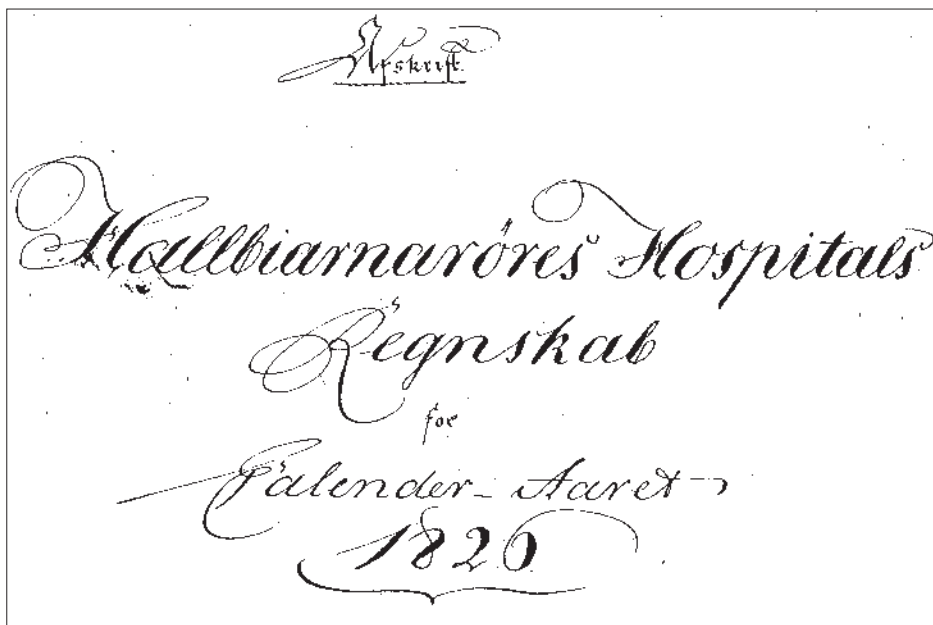 Afskrift.
Hallbiarnaröres Hospitals
Regnskab
for
Calender-Aaret
1826